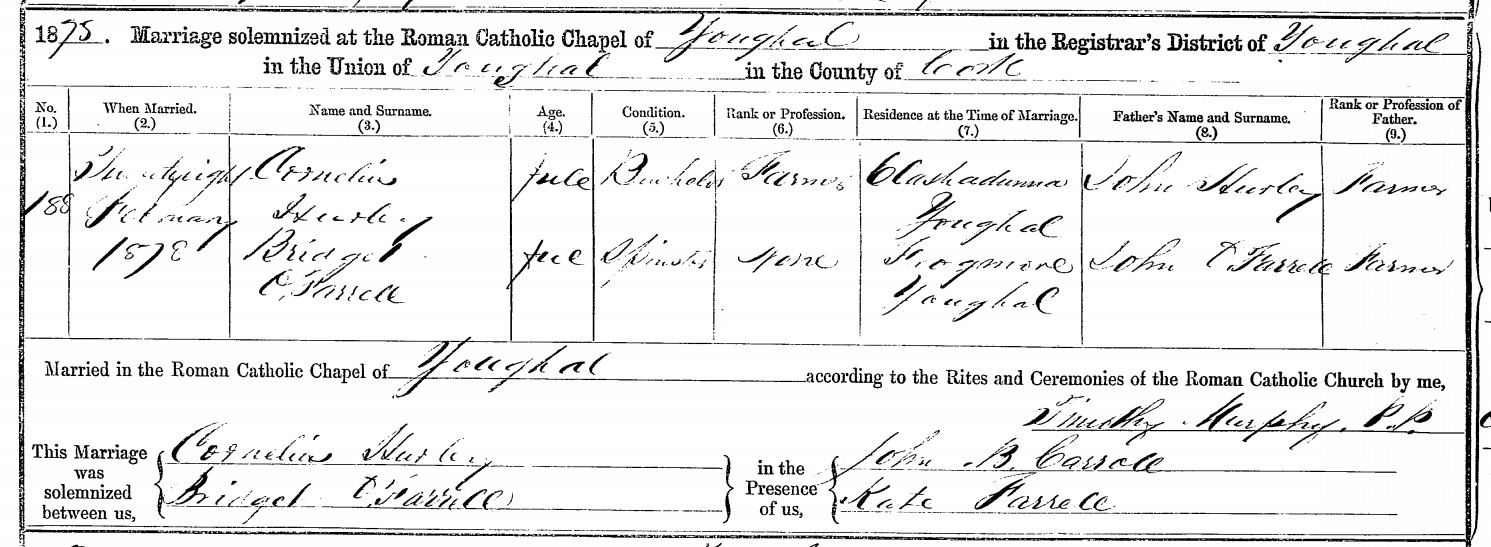 1875. Marriage solemnized at the Roman Catholic Chapel of Youghal in the Registrar's District of Youghal
in the Union of Youghal in the County of Cork
No. (1.) When Married. (2.) Name and Surname. (3.) Age. (4.) Condition. (5.) Rank or Profession. (6.) Residence at the Time of Marriage. (7.) Father's Name and Surname. (8.) Rank or Profession of Father. (9.)
Twentyeight Cornelius full Bachelor Farmer John Hurley Farmer
188 February Hurley Youghal
187 Bridget full Spinster None Frogmore John O'Farrell Farmer
O'Farrell Youghal
Married in the Roman Catholic Chapel of Youghal according to the Rites and Ceremonies of the Roman Catholic Church by me,
Timothy Murphy. P.P.
This Marriage was solemnized between us, Cornelius Hurley in the Presence of us, John B. Carroll
Bridget O'Farrell Kate Farrell